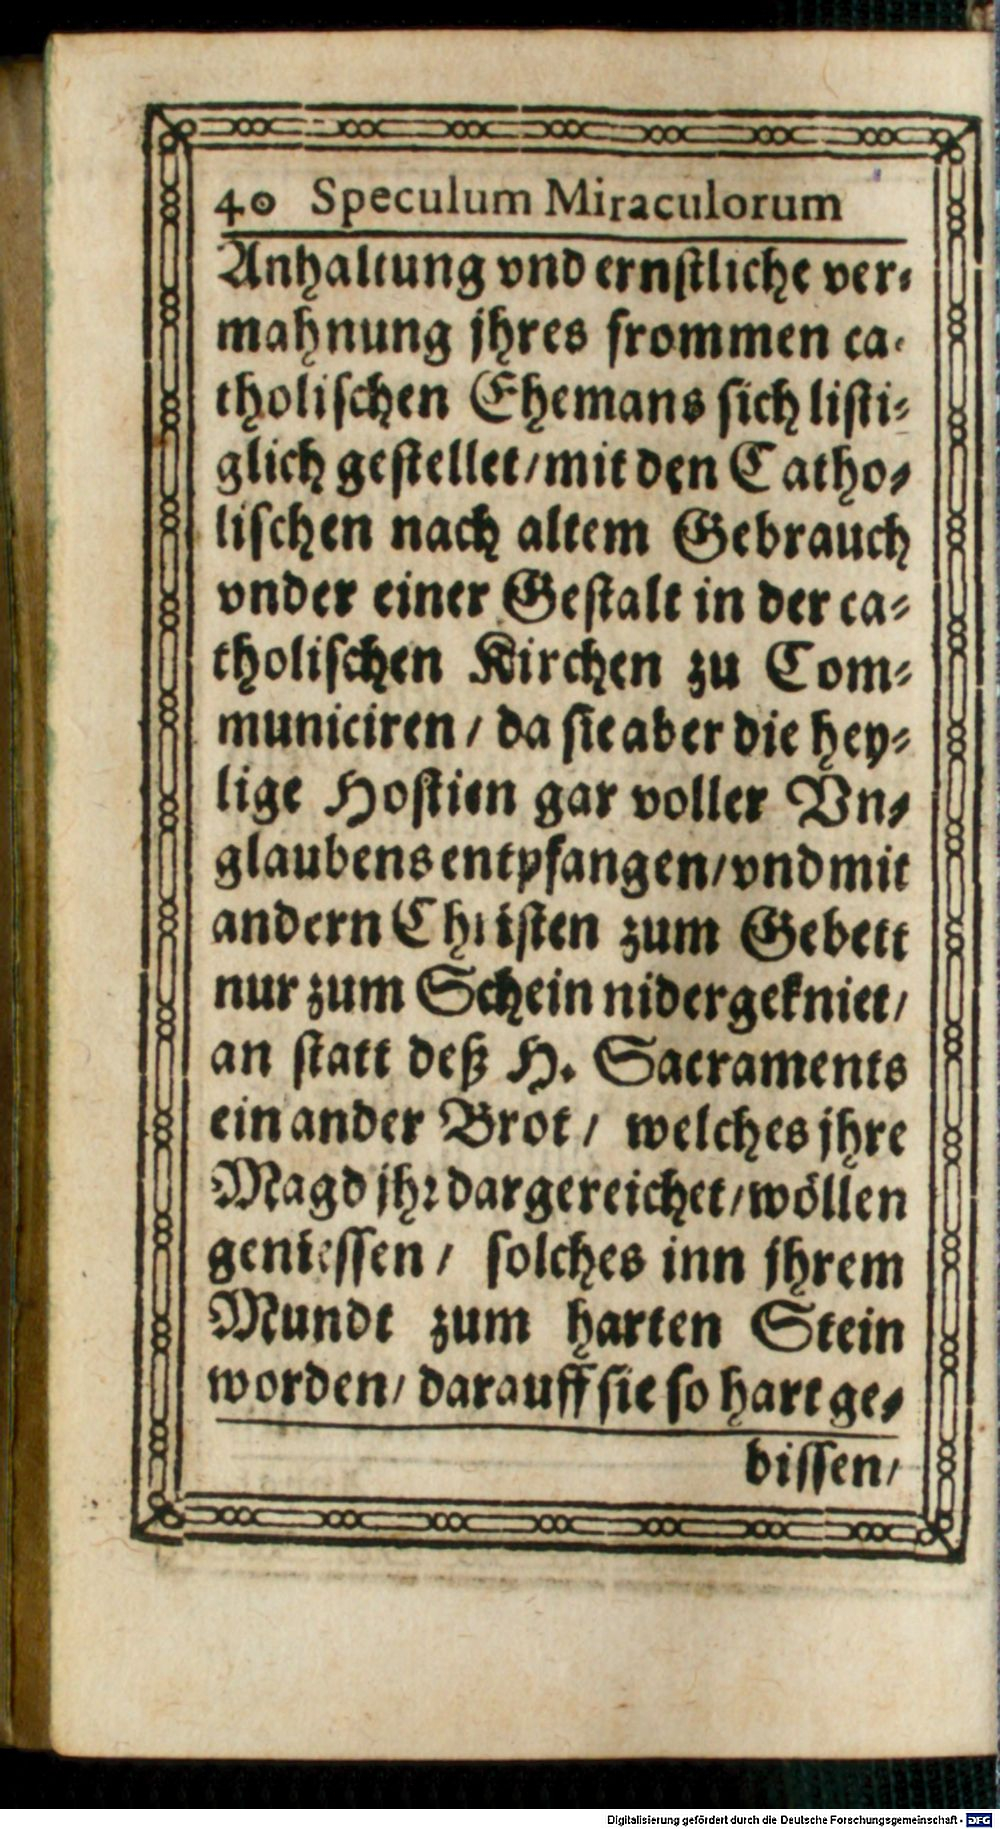 40 Speculum Miraculorum
Anhaltung vnd ernstliche ver-
mahnung jhres frommen ca-
tholischen Ehemans sich listi-
glich gestellet/mit den Catho-
lischen nach altem Gebrauch
vnder einer Gestalt in der ca-
tholischen Kirchen zu Com-
municiren/ da sie aber die hey-
lige Hostien gar voller Vn-
glaubens entpfangen/vnd mit
andern Christen zum Gebett
nur zum Schein nidergekniet/
an statt deß H. Sacraments
ein ander Brot/ welches jhre
Magd jhr dargereichet/wöllen
geniessen/ solches inn jhrem
Mundt zum harten Stein
worden/ darauff sie so hart ge-
bissen/
Digitalisierung gefördert durch die Deutsche Forschungsgemeinschaft - DFG